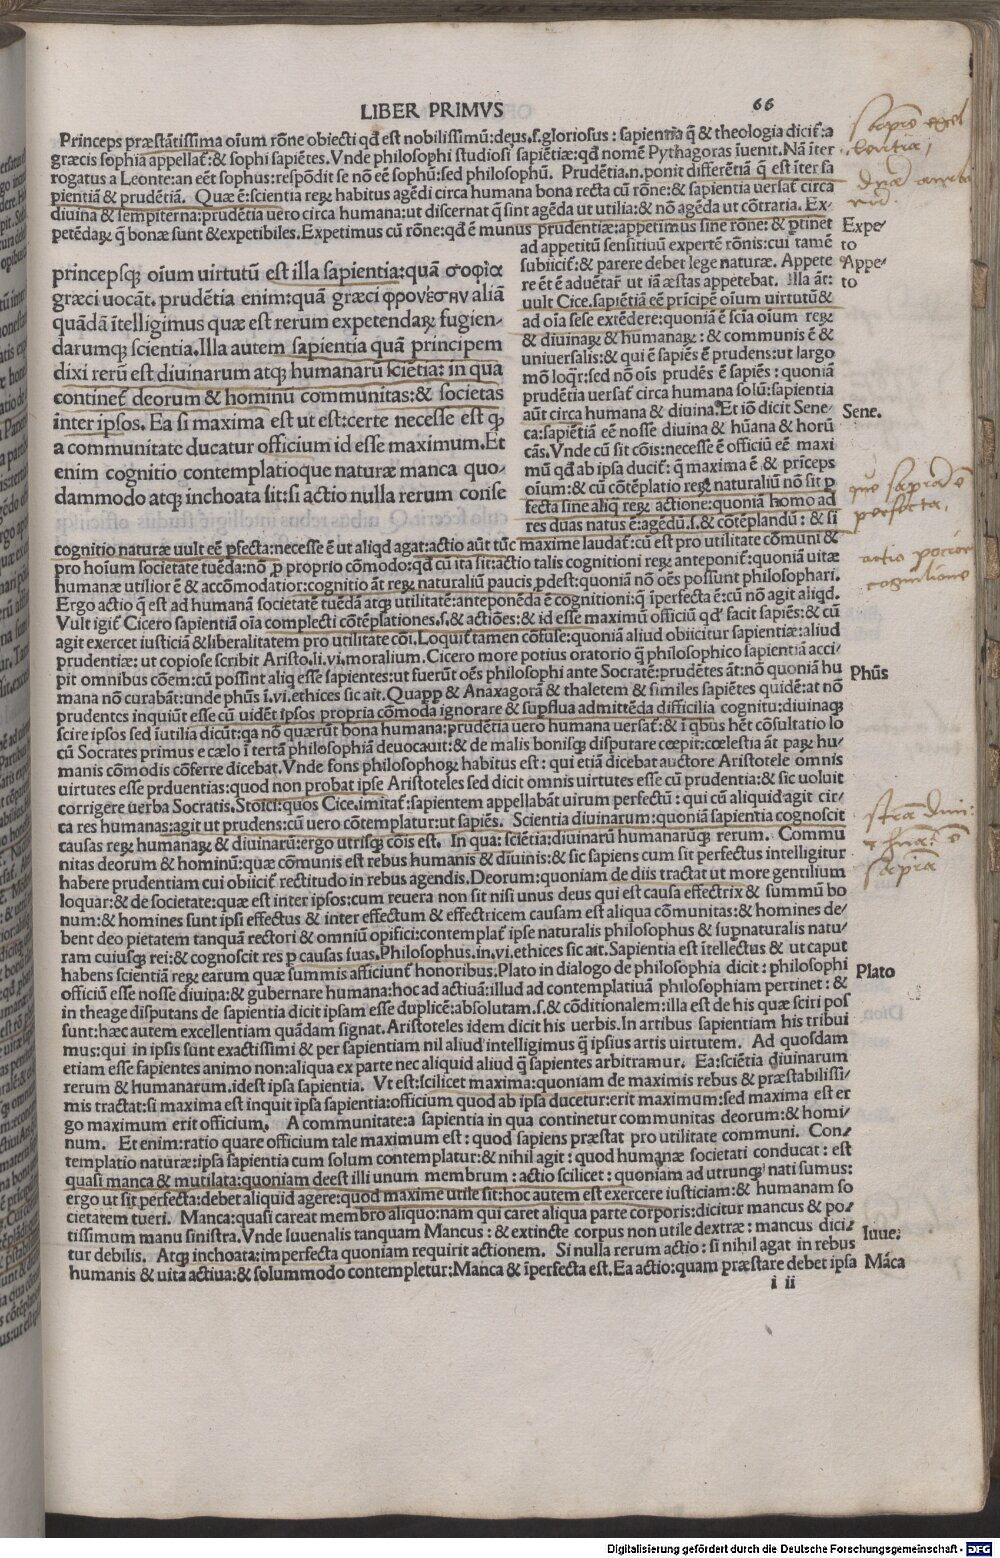 LIBER PRIMVS
66
Princeps præstãtissima oĩum rõne obiecti qđ est nobilissimũ:deus.s.gloriosus: sapientia q̃ & theologia dicit̃:a
græcis sophia appellat̃:& sophi sapiẽtes.Vnde philosophi studiosi sapiẽtiæ:qđ nomẽ Pythagoras ĩuenit.Nã iter
rogatus a Leonte:an eẽt sophus:respõdit se nõ eẽ sophũ:sed philosophũ. Prudẽtia.n.ponit differẽtiã q̃ est ĩter sa
pientiã & prudẽtiã. Quæ ẽ:scientia reꝝ habitus agẽdi circa humana bona recta cũ rõne:& sapientia uersat̃ circa
diuina & sempiterna:prudẽtia uero circa humana:ut discernat q̃ sint agẽda ut utilia:& nõ agẽda ut cõtraria. Ex-
petẽdaꝝ q̃ bonæ sunt &expetibiles. Expetimus cũ rõne:qđ ẽ munus prudentiæ:appetimus sine rõne: & ꝑtinet
ad appetitũ sensitiuũ expertẽ rõnis:cui tamẽ
subiicit̃:& parere debet lege naturæ. Appete
re ẽt ẽ aduẽtar̃ ut iã æstas appetebat. Illa ãt:
uult Cice.sapiẽtiã eẽ prĩcipẽ oĩum uirtutũ&
ad oĩa sese extẽdere:quoniã ẽ scĩa oĩum reꝝ
& diuinaꝝ & humanaꝝ: & communis ẽ &
uniuersalis:& qui ẽ sapiẽs ẽ prudens:ut largo
mõ loq̃r:sed nõ oĩs prudẽs ẽ sapiẽs: quoniã
prudẽtia uersat̃ circa humana solũ:sapientia
aũt circa humana & diuina.Et iõ dicit Sene-
ca:sapiẽtiã eẽ nosse diuina & hũana & horũ
cãs.Vnde cũ sit cõis:necesse ẽ officiũ eẽ maxi
mũ qđ ab ipsa ducit̃: q̃ maxima ẽ & prĩceps
oĩum:& cũ cõtẽplatio reꝝ naturaliũ nõ sit ꝑ
fecta sine aliq reꝝ actione:quoniã homo ad
res duas natus ẽ:agẽdũ.s.& cõtẽplandũ: & si
princepsqꝫ oĩum uirtutũ est illa sapientia:quã σοφία
græci uocãt. prudẽtia enim:quã græci φρονέσην aliã
quãdã ĩtelligimus quæ est rerum expetendaꝝ fugien-
darumqꝫ scientia.Illa autem sapientia quã principem
dixi rerũ est diuinarum atqꝫ humanarũ sciẽtia: in qua
continet̃ deorum & hominũ communitas:& societas
ĩnter ipsos. Ea si maxima est ut est:certe necesse est qꝫ
a communitate ducatur officium id esse maximum.Et
enim cognitio contemplatioque naturæ manca quo-
dammodo atqꝫ inchoata sit:si actio nulla rerum conse
cognitio naturæ uult eẽ ꝑfecta:necesse ẽ ut aliqđ agat:actio aũt tũc maxime laudat̃: cũ est pro utilitate cõmuni &
pro hoĩum societate tuẽda:nõ ꝑ proprio cõmodo:qđ cũ ita sit:actio talis cognitioni reꝝ anteponit̃:quoniã uitæ
humanæ utilior ẽ & accõmodatior:cognitio ãt reꝝ naturaliũ paucis ꝓdest:quoniã nõ oẽs possunt philosophari.
Ergo actio q̃ est ad humanã societatẽ tuẽdã atqꝫ utilitatẽ:anteponẽda ẽ cognitioni:q̃ ĩperfecta ẽ:cũ nõ agit aliqđ.
Vult igit̃ Cicero sapientiã oĩa complecti cõtẽplationes.s.& actiões:& id esse maximũ officiũ qđ facit sapiẽs:& cũ
agit exercet iusticiã &liberalitatem pro utilitate cõi.Loquit̃ tamen cõfuse:quoniã aliud obiicitur sapientiæ:aliud
prudentiæ: ut copiose scribit Aristo.li.vi.moralium.Cicero more potius oratorio q̃ philosophico sapientiã acci-
pit omnibus cõem:cũ possint aliq esse sapientes:ut fuerũt oẽs philosophi ante Socratẽ:prudẽtes ãt:nõ quoniã hu
mana nõ curabãt:unde phũs ĩ.vi.ethices sic ait. Quapp & Anaxagorã & thaletem & similes sapiẽtes quidẽ:at nõ
prudentes inquiũt esse cũ uidẽt ipsos propria cõmoda ignorare & supflua admittẽda difficilia cognitu:diuinaqꝫ
scire ipsos sed ĩutilia dicũt:qa nõ quærũt bona humana:prudẽtia uero humana uersat̃:& ĩ qbus hẽt cõsultatio lo
cũ Socrates primus e cælo ĩ terrã philosophiã deuocauit:& de malis bonisqꝫ disputare cœpit:cœlestia ãt paꝝ hu-
manis cõmodis cõferre dicebat.Vnde fons philosophoꝝ habitus est: qui etiã dicebat auctore Aristotele omnis
uirtutes esse prduentias:quod non probat ipse Aristoteles sed dicit omnis uirtutes esse cũ prudentia:& sic uoluit
corrigere uerba Socratis.Stoici:quos Cice.imitat̃:sapientem appellabãt uirum perfectũ: qui cũ aliquid agit cir-
ca res humanas:agit ut prudens:cũ uero cõtemplatur:ut sapiẽs. Scientia diuinarum:quoniã sapientia cognoscit
causas reꝝ humanaꝝ & diuinarũ:ergo utrisqꝫ cõis est. In qua: sciẽtia:diuinarũ humanarũqꝫ rerum. Commu
nitas deorum & hominũ:quæ cõmunis est rebus humanis & diuinis:& sic sapiens cum sit perfectus intelligitur
habere prudentiam cui obiicit̃ rectitudo in rebus agendis.Deorum:quoniam de diis tractat ut more gentilium
loquar:& de societate:quæ est inter ipsos:cum reuera non sit nisi unus deus qui est causa effectrix & summũ bo
num:& homines sunt ipsi effectus & inter effectum & effectricem causam est aliqua cõmunitas:& homines de-
bent deo pietatem tanquã rectori & omniũ opifici:contemplat̃ ipse naturalis philosophus & supnaturalis natu-
ram cuiusqꝫ rei:& cognoscit res ꝑ causas suas.Philosophus.in.vi.ethices sic ait.Sapientia est ĩtellectus & ut caput
habens scientiã reꝝ earum quæ summis afficiunt̃ honoribus.Plato in dialogo de philosophia dicit: philosophi
officiũ esse nosse diuina:& gubernare humana:hoc ad actiuã:illud ad contemplatiuã philosophiam pertinet: &
in theage disputans de sapientia dicit ipsam esse duplicẽ:absolutam.s.& cõditionalem:illa est de his quæ sciri pos
sunt:hæc autem excellentiam quãdam signat.Aristoteles idem dicit his uerbis.In artibus sapientiam his tribui
mus:qui in ipsis sunt exactissimi & per sapientiam nil aliud intelligimus q̃ ipsius artis uirtutem. Ad quosdam
etiam esse sapientes animo non:aliqua ex parte nec aliquid aliud q̃ sapientes arbitramur. Ea:sciẽtia diuinarum
rerum & humanarum.idest ipsa sapientia. Vt est:scilicet maxima:quoniam de maximis rebus & præstabilissi-
mis tractat:si maxima est inquit ĩpsa sapientia:officium quod ab ipsa ducetur:erit maximum:sed maxima est er
go maximum erit officium. A communitate:a sapientia in qua continetur communitas deorum:& homi-
num. Et enim:ratio quare officium tale maximum est: quod sapiens præstat pro utilitate communi. Con-
templatio naturæ:ipsa sapientia cum solum contemplatur:& nihil agit: quod humanæ societati conducat: est
quasi manca & mutilata:quoniam deest illi unum membrum: actio scilicet: quoniam ad utrunqꝫ nati sumus:
ergo ut sit perfecta:debet aliquid agere:quod maxime utile sit:hoc autem est exercere iusticiam:& humanam so
cietatem tueri. Manca:quasi careat membro aliquo:nam qui caret aliqua parte corporis:dicitur mancus & po-
tissimum manu sinistra.Vnde Iuuenalis tanquam Mancus: & extincte corpus non utile dextræ: mancus dici-
tur debilis. Atqꝫ inchoata:imperfecta quoniam requirit actionem. Si nulla rerum actio: si nihil agat in rebus
humanis & uita actiua:& solummodo contempletur:Manca & ĩperfecta est.Ea actio:quam præstare debet ipsa
i ii
Expe-
to
Appe-
to
Sene.
Phũs
Plato
Iuue.
Mãca
Digitalisierung gefördert durch die Deutsche Forschungsgemeinschaft - DFG